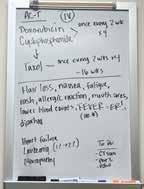 AC-T (IV)
Doxorubicin
Cyclophosphamide
once every 2 wks x4
Taxol - once every 2 wks x4
- 16 wks
Hair loss, nausea, fatigue,
rash, allergic reaction, mouth sores,
lower blood counts, FEVER - ER!
diarrhea
Heart failure
Leukemia (1%)
Neuropathy
- CT scan